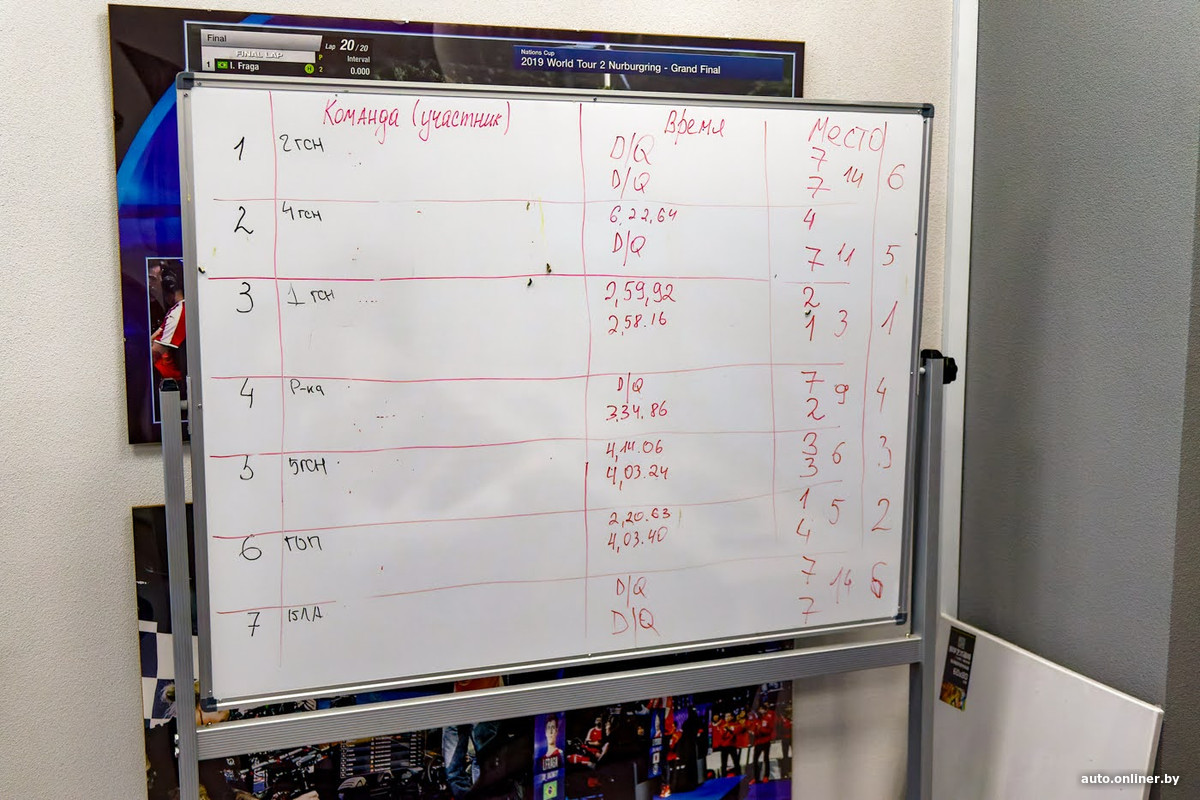 Final
Lap 20/20
FINAL LAP
P 2
Interval
0.000
1 I. Fraga
Nations Cup
2019 World Tour 2 Nurburgring - Grand Final
Команда (участник) Время Место
1 2 гсн D/Q 7 14 6
D/Q 7
2 4 гсн 6.22,64 4 11 5
D/Q 7
3 1 гсн 2,59,92 2 3 1
2,58.16 1
4 Р-ка D/Q 7 9 4
3.34.86 2
5 5 гсн 4,14.06 3 6 3
4,03.24 3
6 гоп 2,20.63 1 5 2
4,03.40 4
7 D/Q 7 14 6
D/Q 7
I.FRAGA
auto.onliner.by